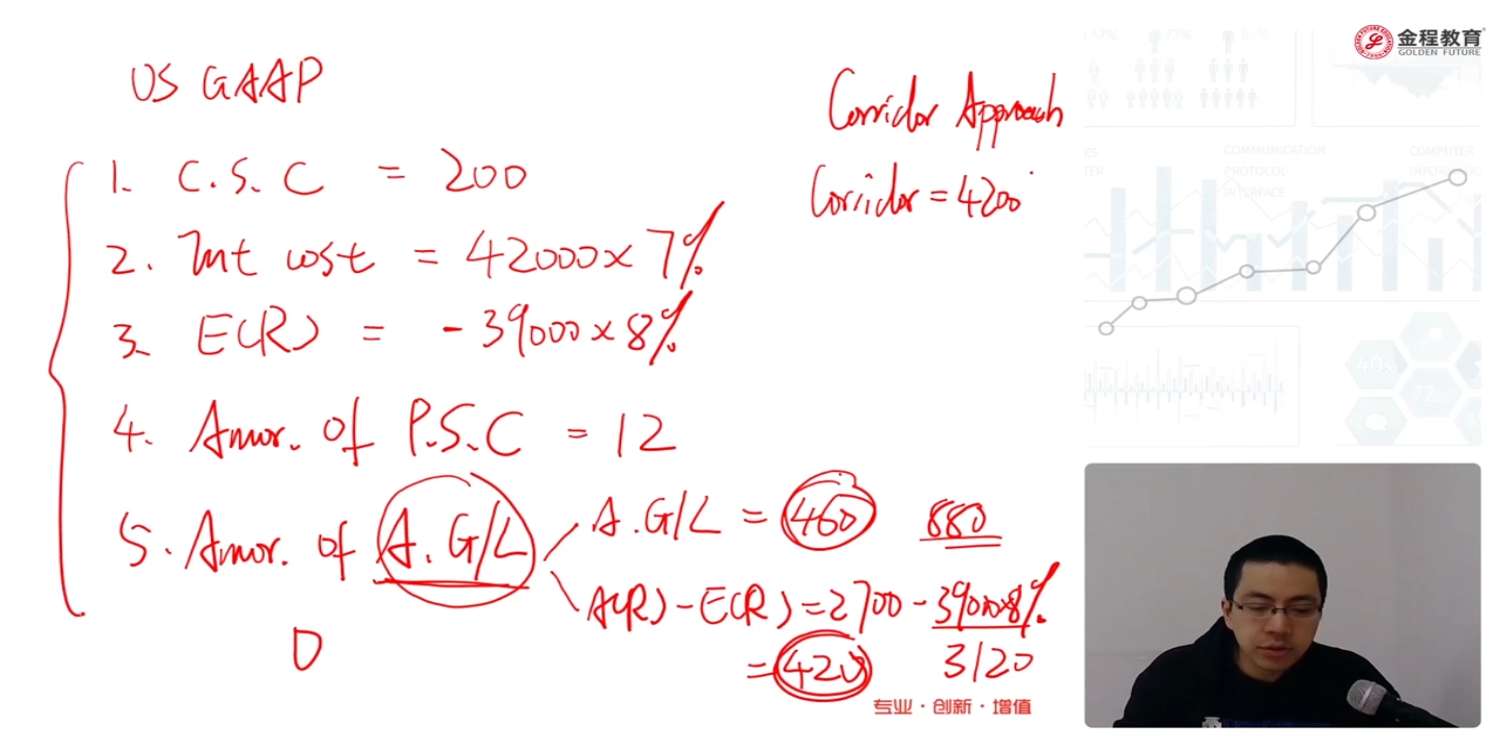 金程教育
GOLDEN FUTURE
US GAAP
Corridor Approach
Corridor = 4200
1. C.S.C = 200
2. Int cost = 42000 x 7%
3. E(R) = - 39000 x 8%
4. Amor. of P.S.C = 12
5. Amor. of A.G/L
A.G/L = 460 880
A(R) - E(R) = 2700 - 39000x8%
= 420 3120
0
专业·创新·增值
COMMUNICATION
PROTOCOL
INTERFACE
COMPUTER
40%